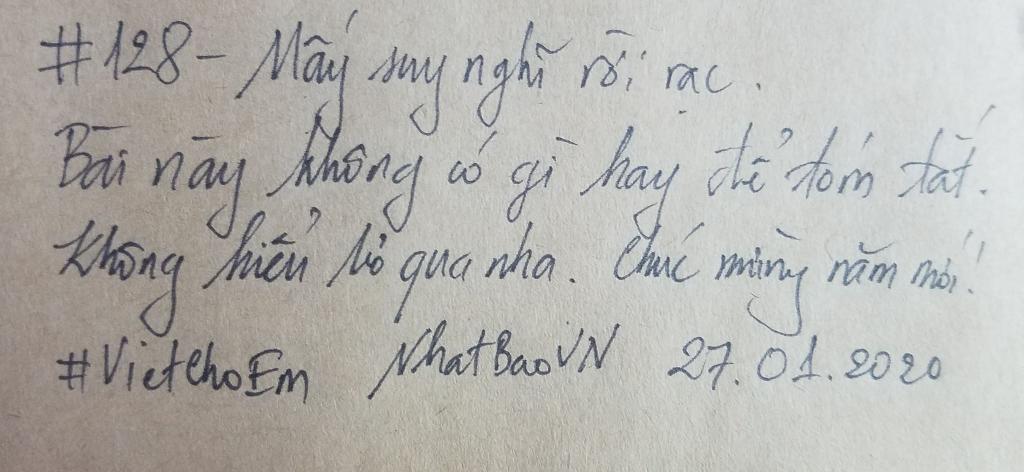 #128 - Mấy suy nghĩ rời rạc.
Bài này không có gì hay để tóm tắt.
Không hiểu bỏ qua nha. Chúc mừng năm mới!
#VietChoEm NhatBaoVN 27.01.2020